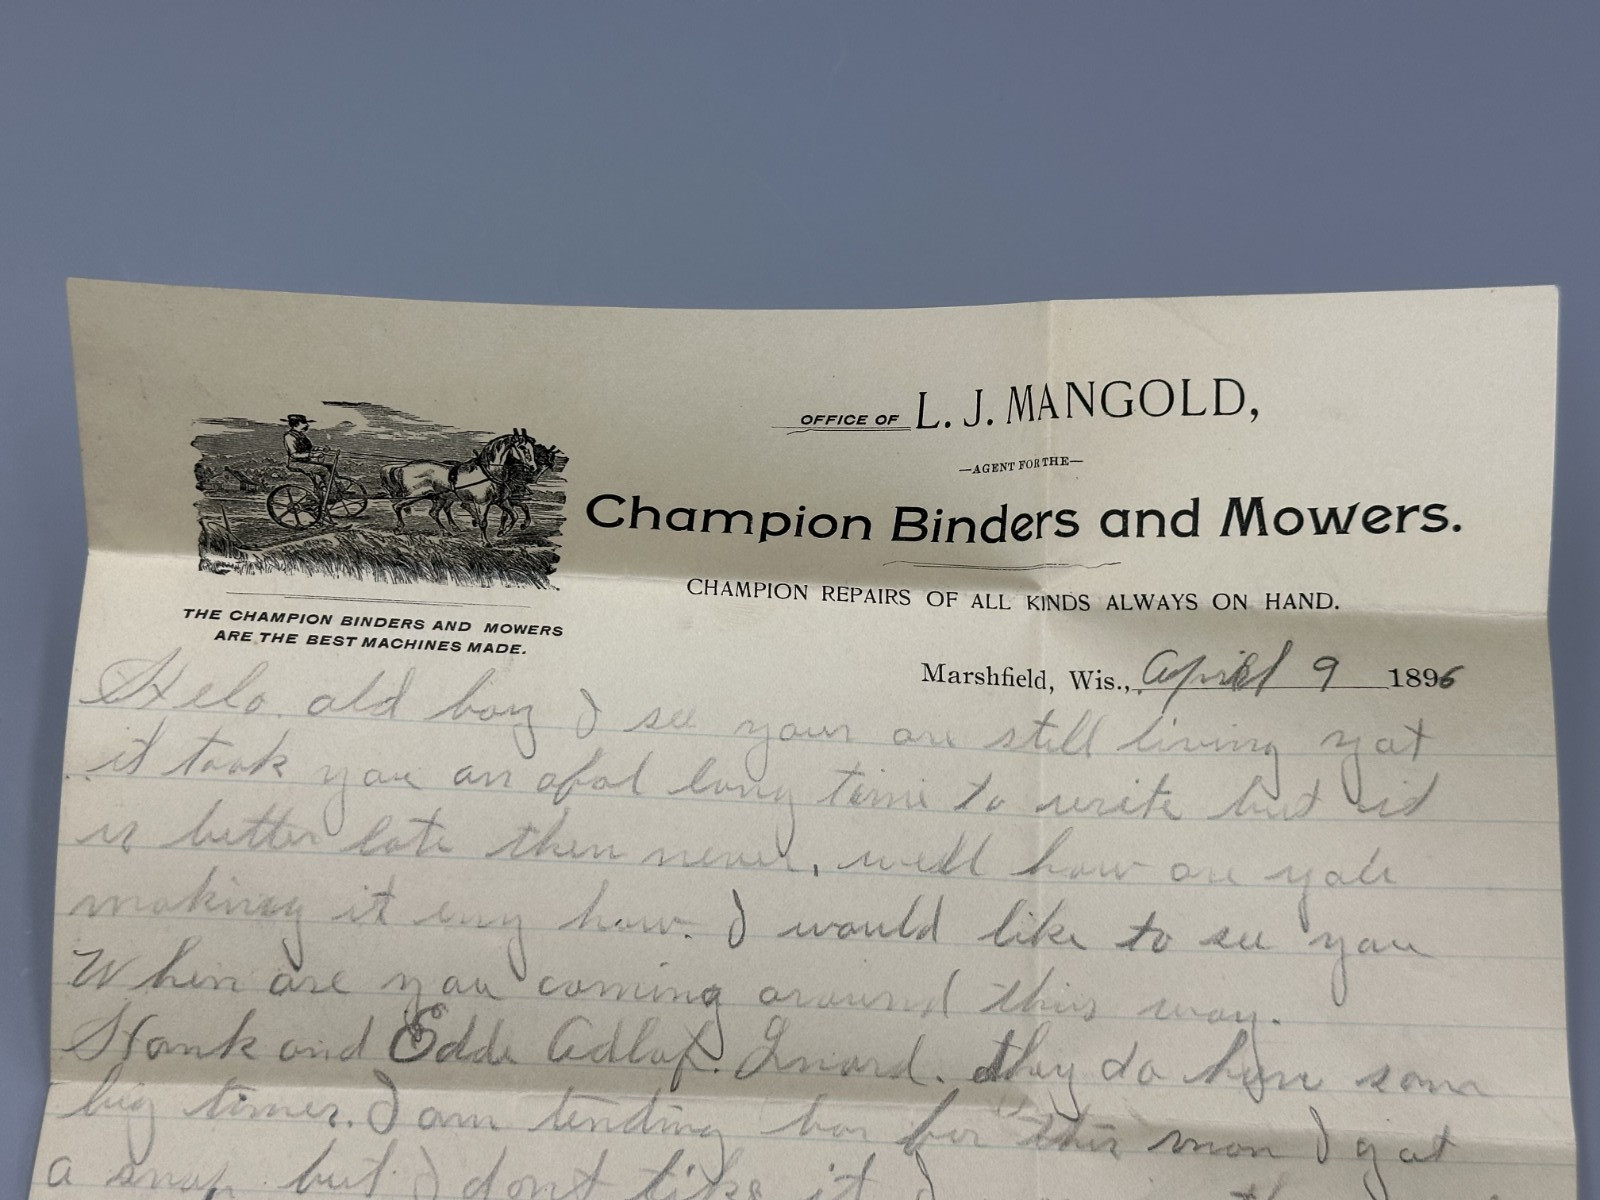 OFFICE OF L. J. MANGOLD,
—AGENT FOR THE—
Champion Binders and Mowers.
CHAMPION REPAIRS OF ALL KINDS ALWAYS ON HAND.
THE CHAMPION BINDERS AND MOWERS
ARE THE BEST MACHINES MADE.
Marshfield, Wis., April 9 1896
Helo old boy I see your are still living yat
it took you an ofol long time to write but id
is better late then never, well how are you
making it eny how. I would like to see you
When are you coming around this way.
Hank and Edde Adlof. they do have som
big times. I am tending bar for this man I gat
a snap but I dont like it I